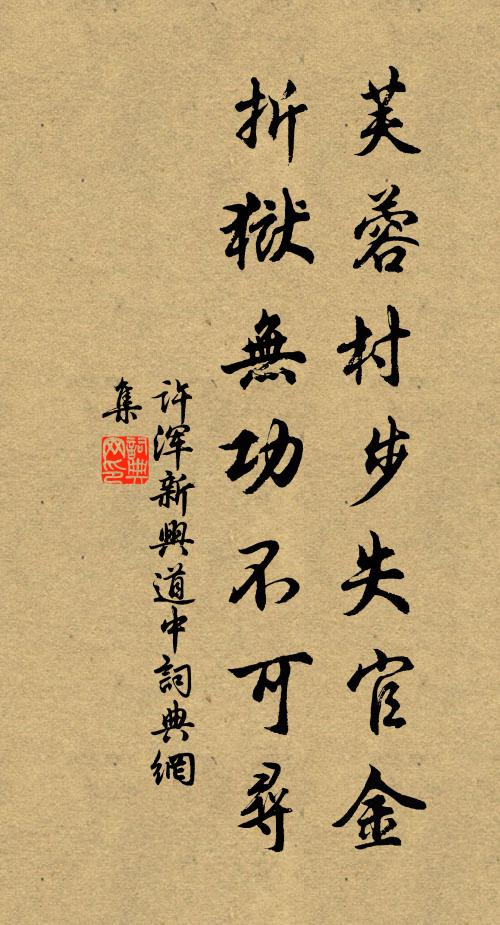 芙蓉村步失官金
折獄無功不可尋
許渾新興道中詞典網
集
詞典
网印